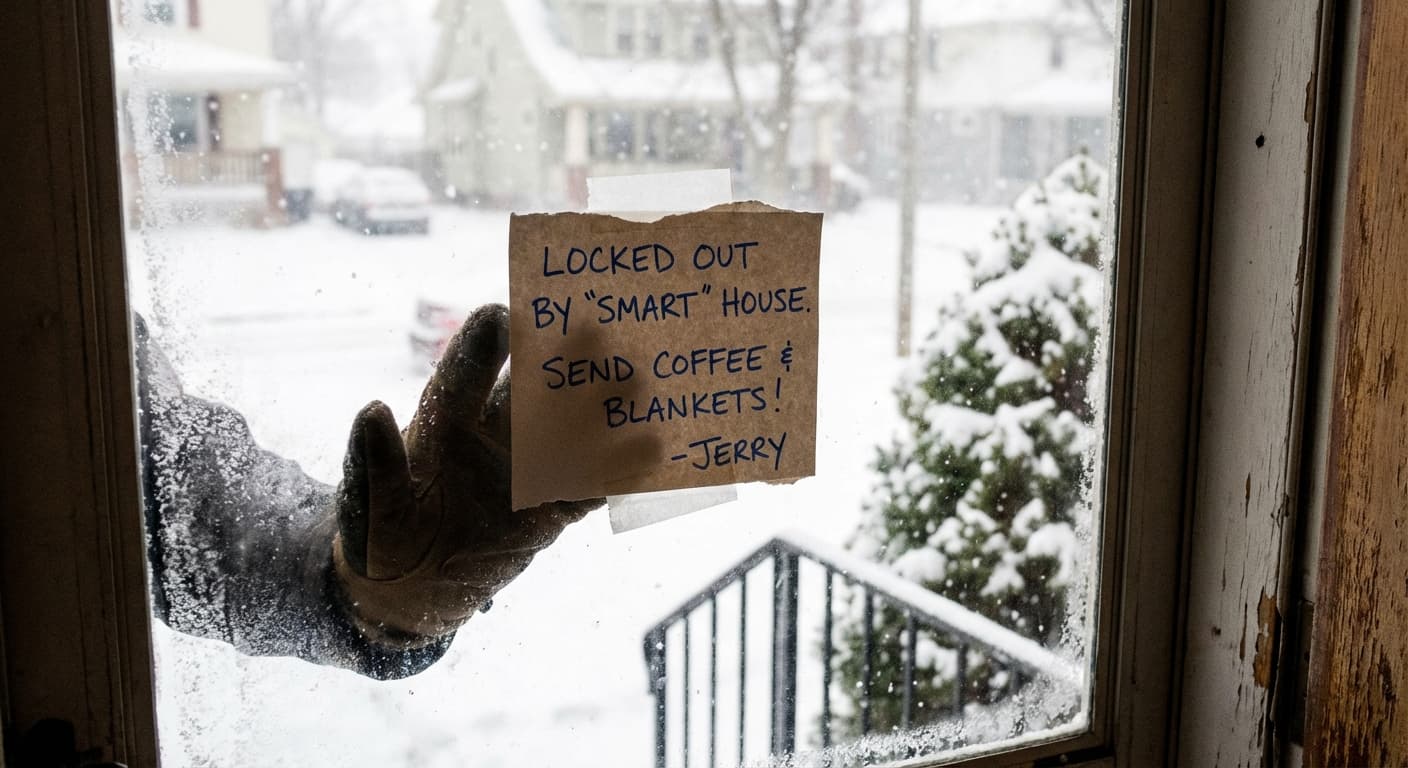 LOCKED OUT
BY "SMART" HOUSE.
SEND COFFEE &
BLANKETS!
-JERRY